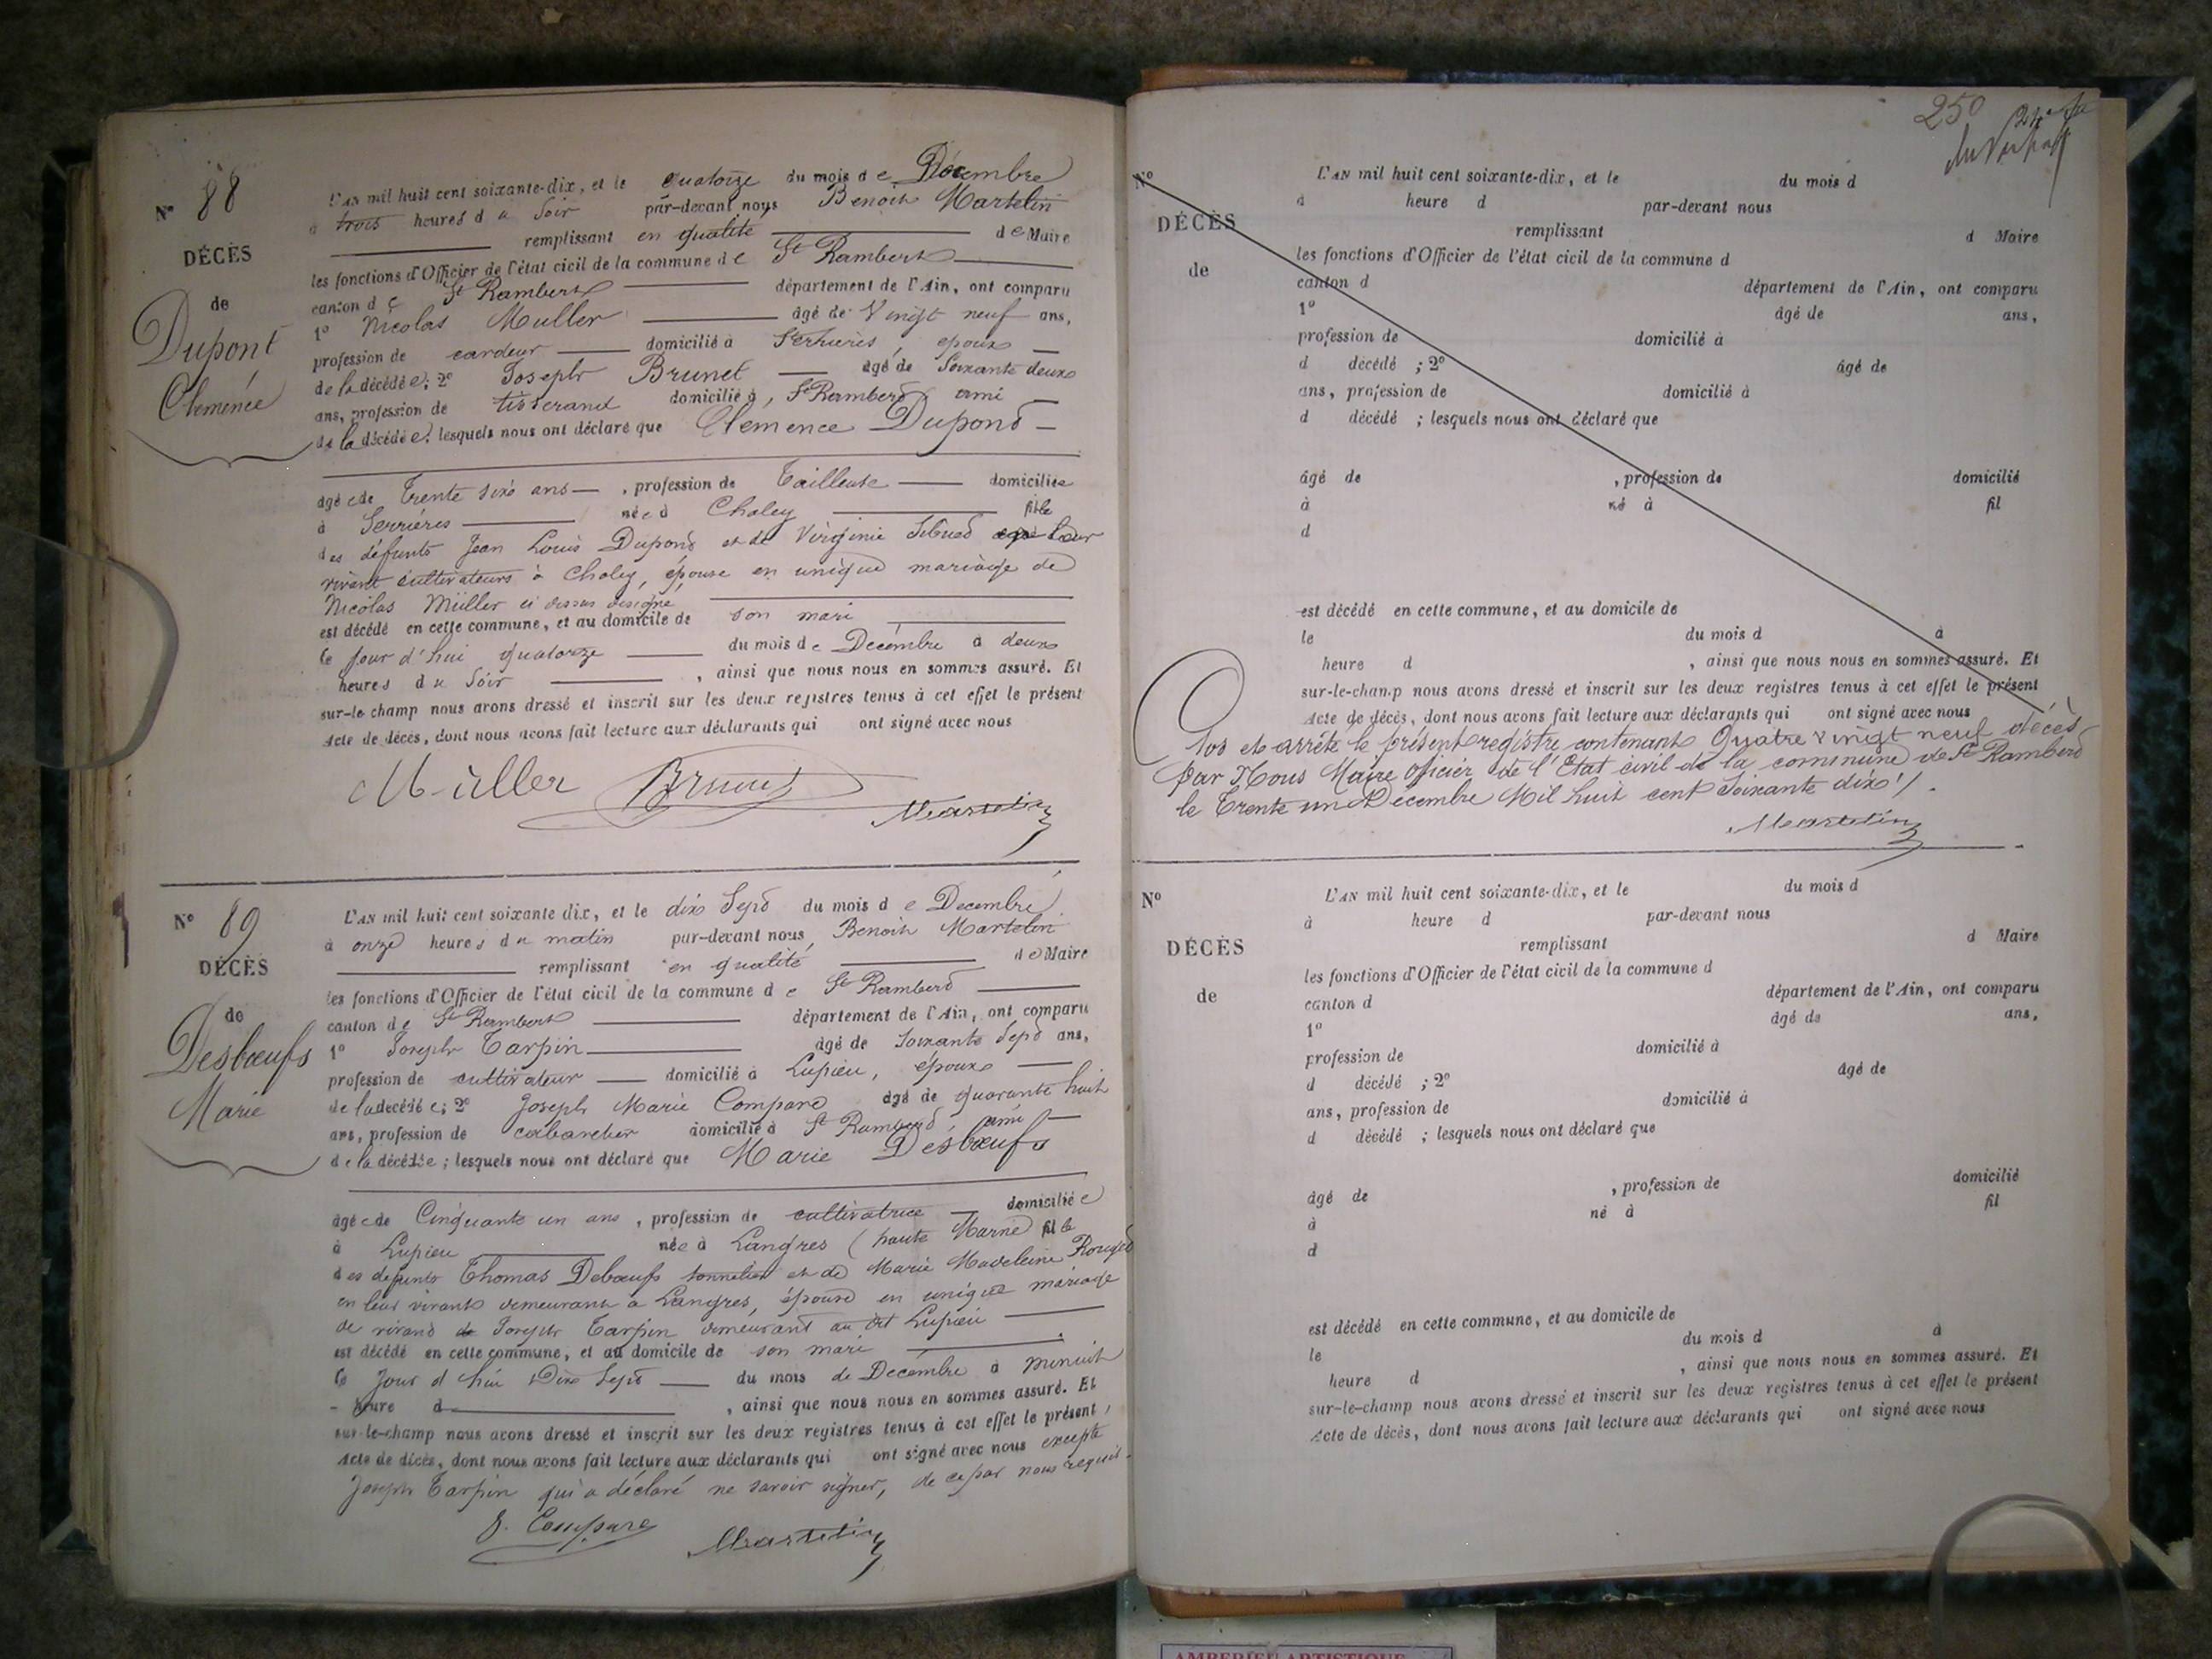 N° 88
DÉCÈS
de
Dupont
Clemence
L'AN mil huit cent soixante-dix, et le quatorze du mois de Décembre
à trois heures du Soir par-devant nous Benoit Martelin
remplissant en qualité de Maire
les fonctions d'Officier de l'état civil de la commune de St Rambert
canton de St Rambert département de l'Ain, ont comparu
1° Nicolas Muller âgé de Vingt neuf ans,
profession de cardeur domicilié à Serrières, epoux
de la décédée; 2° Joseph Brunet âgé de Soixante deux
ans, profession de tisserand domicilié à, St Rambert ami
de la décédée; lesquels nous ont déclaré que Clemence Dupont
agée de Trente six ans, profession de Tailleuse domiciliée
à Serrières née à Choley fille
des défunts Jean Louis Dupont et de Virginie leur
vivant cultivateurs à Choley, épouse en unique mariage de
Nicolas Müller ci dessus désigné
est décédé en cette commune, et au domicile de son mari
le jour d'hui quatorze du mois de Decembre à deux
heures du Soir, ainsi que nous nous en sommes assuré. Et
sur-le champ nous avons dressé et inscrit sur les deux registres tenus à cet effet le présent
Acte de décès, dont nous avons fait lecture aux déclarants qui ont signé avec nous
Müller Brunet Martelin
N° 89
DÉCÈS
de
Desbœufs
Marie
L'AN mil huit cent soixante dix, et le dix Sept du mois de Decembre
à onze heures du matin par-devant nous, Benoit Martelin
remplissant en qualité de Maire
les fonctions d'Officier de l'état civil de la commune de St Rambert
canton de St Rambert département de l'Ain, ont comparu
1° Joseph Tarpin âgé de Soixante Sept ans,
profession de cultivateur domicilié à Lupieu, époux
de la décédée; 2° Joseph Marie Compare âgé de quarante huit
ans, profession de cabaretier domicilié à St Rambert, ami
de la décédée; lesquels nous ont déclaré que Marie Desbœufs
âgée de Cinquante un ans, profession de cultivatrice domiciliée
à Lupieu née à Langres (haute Marne fille
des defunts Thomas Debœufs tonnelier et de Marie Madeleine Rouget
en leur vivants demeurant à Langres, épouse en unique mariage
de vivant de Joseph Tarpin demeurant au dit Lupieu
est décédé en cette commune, et au domicile de son mari
le Jour d'hui Dix Sept du mois de Decembre à minuit
- heure d, ainsi que nous nous en sommes assuré. Et
sur-le-champ nous avons dressé et inscrit sur les deux registres tenus à cet effet le présent
Acte de décès, dont nous avons fait lecture aux déclarants qui ont signé avec nous excepté
Joseph Tarpin qui a déclaré ne savoir signer, de ce par nous requis.
J. Compare Martelin
250
N°
DÉCÈS
de
L'AN mil huit cent soixante-dix, et le du mois d
à heure d par-devant nous
remplissant d Maire
les fonctions d'Officier de l'état civil de la commune d
canton d département de l'Ain, ont comparu
1° âgé de ans,
profession de domicilié à
d décédé ; 2° âgé de
ans, profession de domicilié à
d décédé ; lesquels nous ont déclaré que
âgé de , profession de domicilié
à né à fil
d
est décédé en cette commune, et au domicile de
le du mois d à
heure d , ainsi que nous nous en sommes assuré. Et
sur-le-champ nous avons dressé et inscrit sur les deux registres tenus à cet effet le présent
Acte de décès, dont nous avons fait lecture aux déclarants qui ont signé avec nous
Clos et arrêté le présent registre contenant Quatre vingt neuf décès
par Nous Maire Officier de l'Etat civil de la commune de St Rambert
le Trente un Décembre Mil huit cent Soixante dix /.
Martelin
N°
DÉCÈS
de
L'AN mil huit cent soixante-dix, et le du mois d
à heure d par-devant nous
remplissant d Maire
les fonctions d'Officier de l'état civil de la commune d
canton d département de l'Ain, ont comparu
1° âgé de ans,
profession de domicilié à
d décédé ; 2° âgé de
ans, profession de domicilié à
d décédé ; lesquels nous ont déclaré que
âgé de , profession de domicilié
à né à fil
d
est décédé en cette commune, et au domicile de
le du mois d à
heure d , ainsi que nous nous en sommes assuré. Et
sur-le-champ nous avons dressé et inscrit sur les deux registres tenus à cet effet le présent
Acte de décès, dont nous avons fait lecture aux déclarants qui ont signé avec nous
AMBERIEU ARTISTIQUE